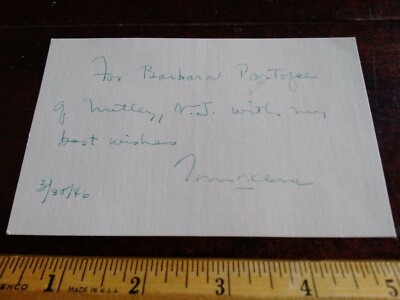 For Barbara Portofee
of Nutley, N.J. with my
best wishes
Tom C. Clark
3/30/46
ENCO MADE IN U.S.A.
1 2 3 4 5